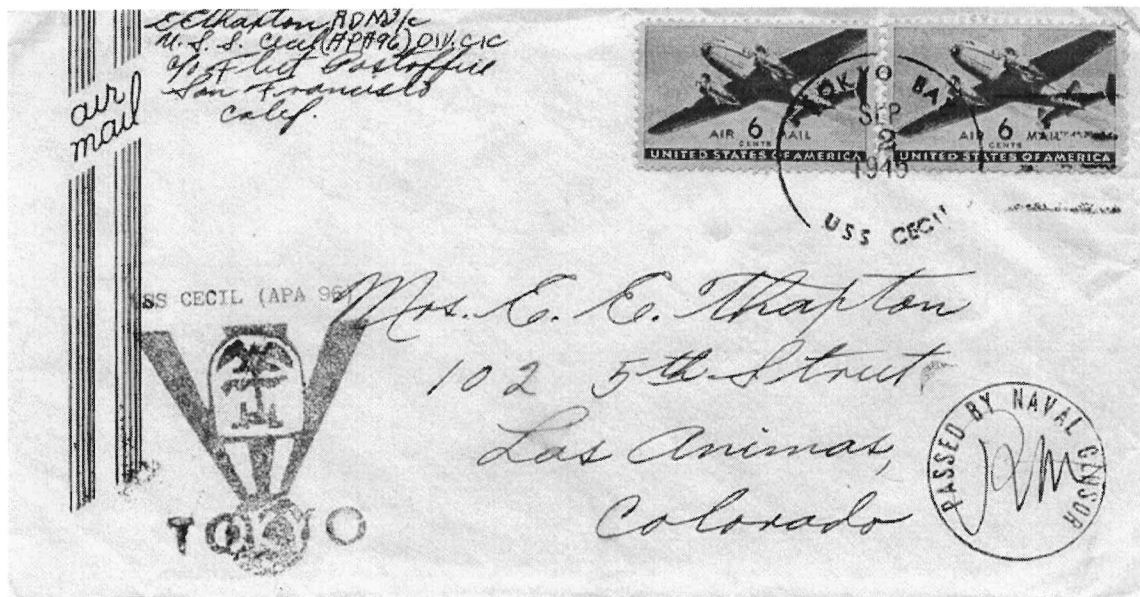 E E Thapton RDM3/c
U.S.S. Cecil (APA96) DIV. CIC
c/o Fleet Postoffice
San Francisco
Calif.
air
mail
AIR 6 MAIL
CENTS
UNITED STATES OF AMERICA
AIR 6 MAIL
CENTS
UNITED STATES OF AMERICA
TOKYO BAY
SEP
2
1945
USS CECIL
USS CECIL (APA 96)
TOKYO
Mrs. E. E. Thapton
102 5th Street
Las Animas,
Colorado
PASSED BY NAVAL CENSOR